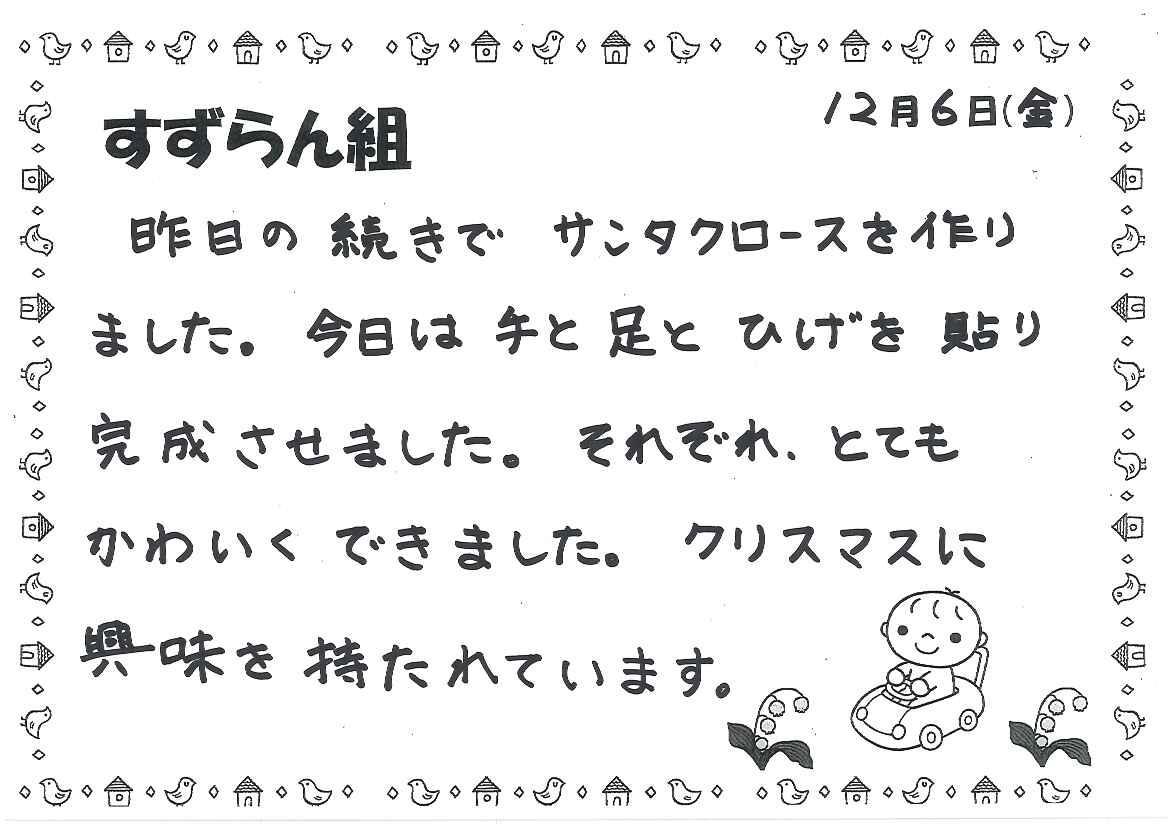 すずらん組
12月6日(金)
昨日の続きで サンタクロースを作り
ました。今日は手と足とひげを貼り
完成させました。それぞれ、とても
かわいくできました。クリスマスに
興味を持たれています。